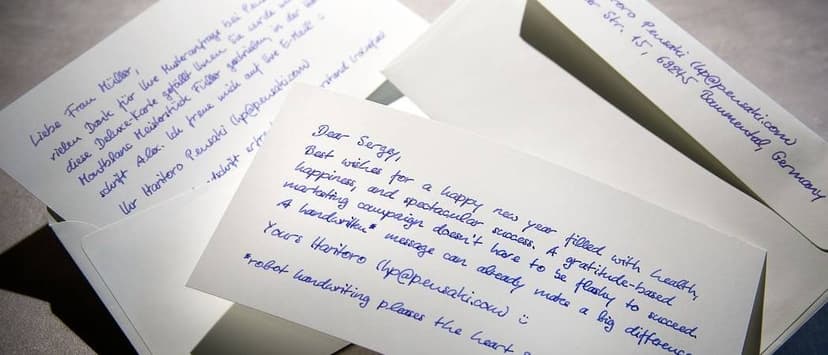 Liebe Frau Müller,
vielen Dank für Ihre Musteranfrage bei Pen
diese Deluxe-Karte gefällt Ihnen Sie wurde mi
Montblanc Meisterstück Füller geschrieben in der
schrift Alex. Ich freue mich auf Ihre E-Mail
Ihr Haritoro Pensaki (hp@pensaki.com)
schrift
Haritoro Pensaki (hp@pensaki.com)
Str. 15, 69245 Bammental, Germany
Dear Sergey,
Best wishes for a happy new year filled with health,
happiness, and spectacular success. A gratitude-based
marketing campaign doesn't have to be flashy to succeed.
A handwritten* message can already make a big difference
Yours Haritoro (hp@pensaki.com) :)
*robot handwriting pleases the heart